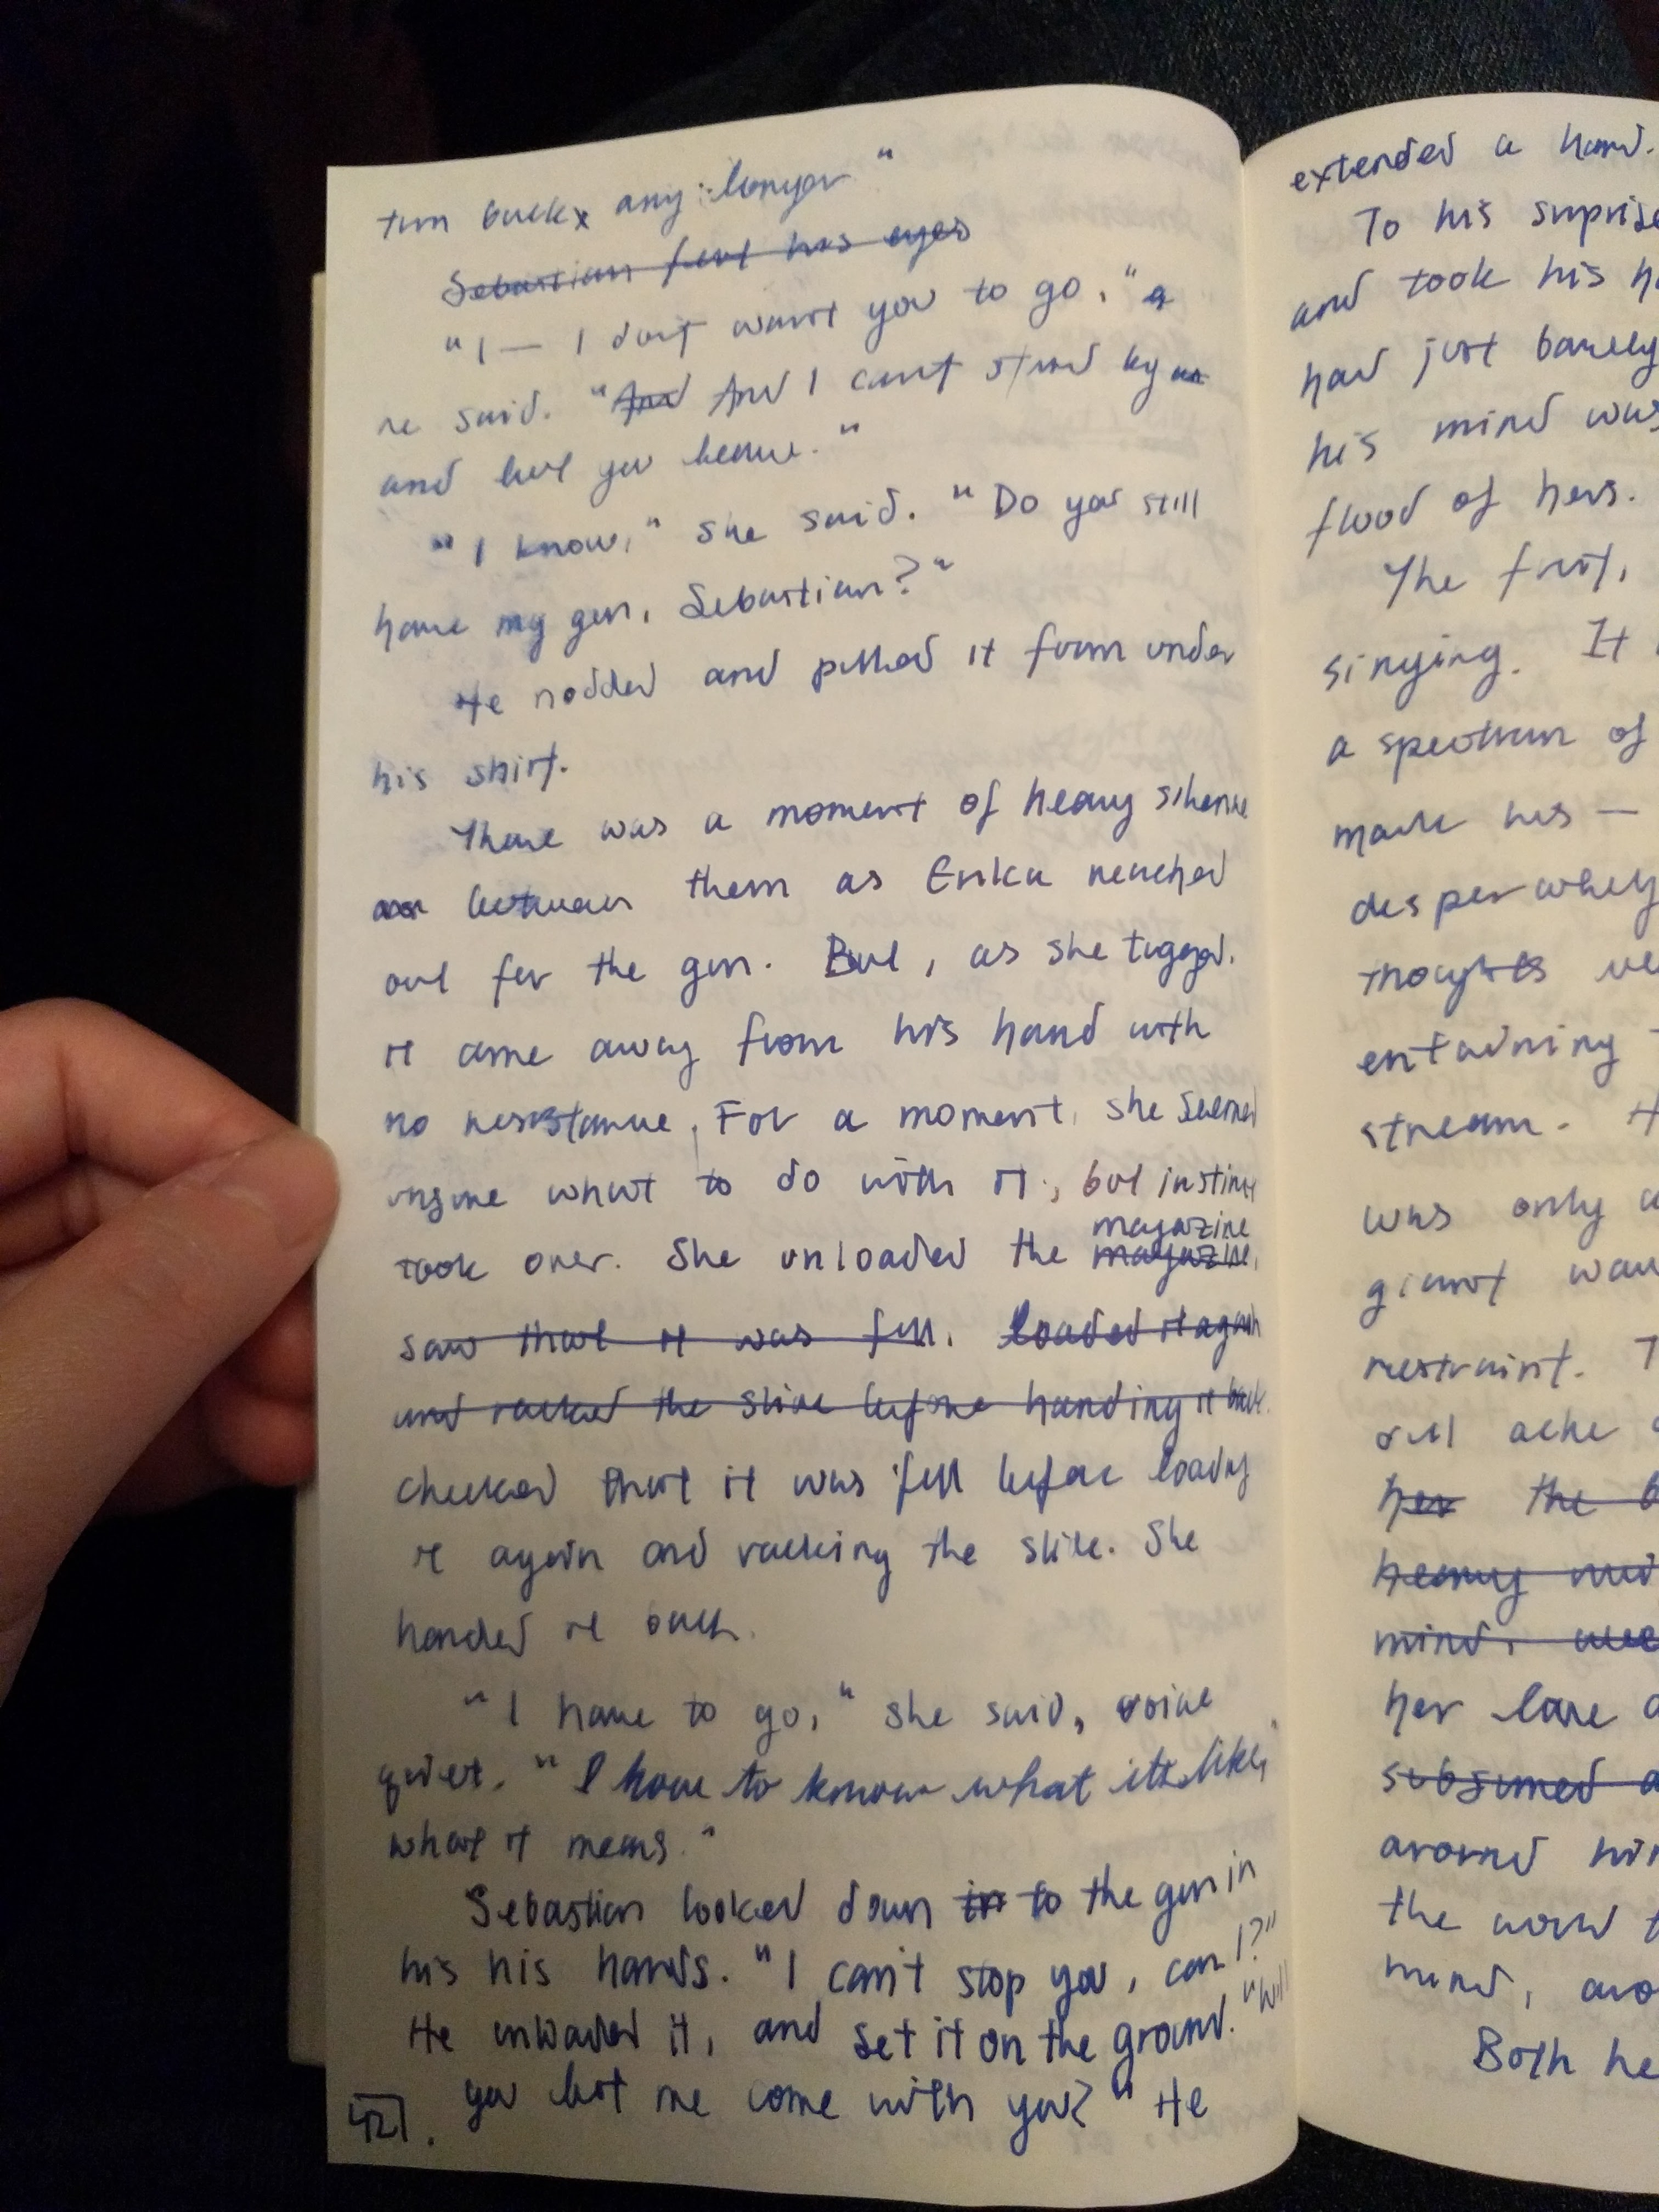 turn back any longer"
Sebastian felt his eyes
"I — I don't want you to go,"
he said. "And And I can't stand by
and let you leave."
"I know," she said. "Do you still
have my gun, Sebastian?"
He nodded and pulled it from under
his shirt.
There was a moment of heavy silence
between them as Erika reached
out for the gun. But, as she tugged,
it came away from his hand with
no resistance. For a moment, she seemed
unsure what to do with it, but instinct
took over. She unloaded the magazine
magazine,
saw that it was full. loaded it again
and racked the slide before handing it back.
checked that it was full before loading
it again and racking the slide. She
handed it back.
"I have to go," she said, voice
quiet. "I have to know what it's like,
what it means."
Sebastian looked down in to the gun in
his his hands. "I can't stop you, can I?"
He unloaded it, and set it on the ground. "Will
you let me come with you?" He
42.
extended a hand.
To his surprise
and took his
had just barely
his mind was
flood of hers.
The first,
singing. It
a spectrum of
made his —
desperately
thoughts
entwining
stream.
was only
giant
restraint.
all ache
her the
heavy
mind,
her love
subsumed
around him
the world
mind,
Both he